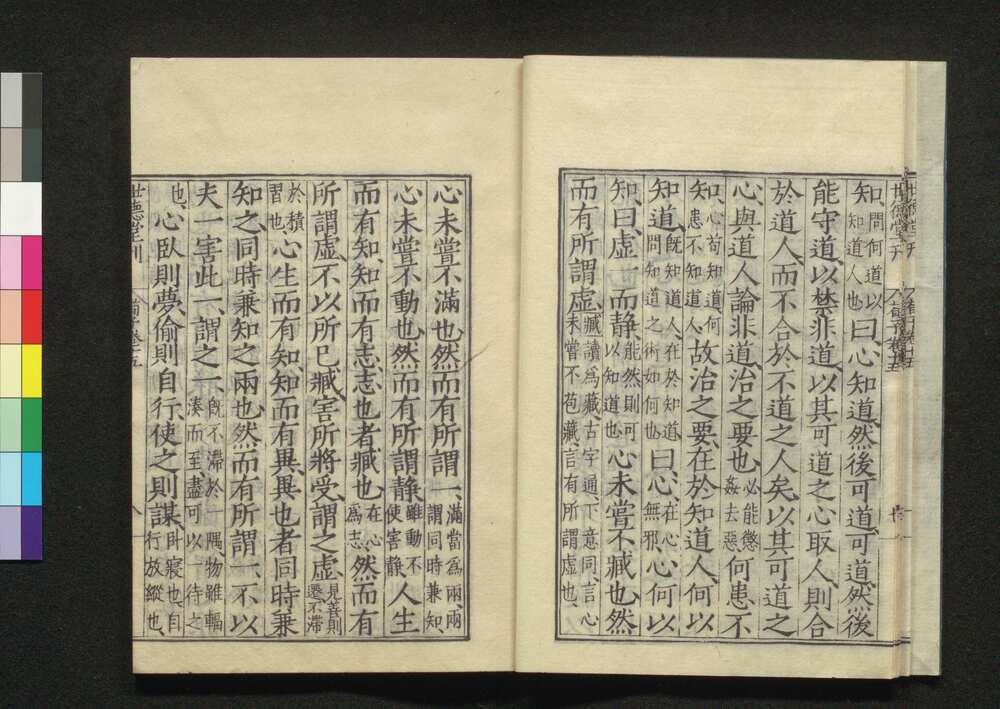 知問何道以知道人也曰心知道然後可道可道然後
能守道以禁非道以其可道之心取人則合
於道人而不合於不道之人矣以其可道之
心與道人論非道治之要也必能懲姦去惡何患不
知心苟知道何患不知道人故治之要在於知道人何以
知道既知道人在於知道問知道之術如何也曰心在心無邪心何以
知曰虚一而静能然則可以知道也心未嘗不臧也然
而有所謂虚臧讀爲藏古字通下意同言心未嘗不苞藏言有所謂虚也
心未嘗不滿也然而有所謂一滿當爲兩兩謂同時兼知
心未嘗不動也然而有所謂静雖動不使害静人生
而有知知而有志志也者臧也在心爲志然而有
所謂虚不以所已臧害所將受謂之虚見善則遷不滯
於積習也心生而有知知而有異異也者同時兼
知之同時兼知之兩也然而有所謂一不以
夫一害此一謂之一既不滯於一隅物雖輻湊而至盡可以一待之
也心臥則夢偷則自行使之則謀臥寢也自行放縱也